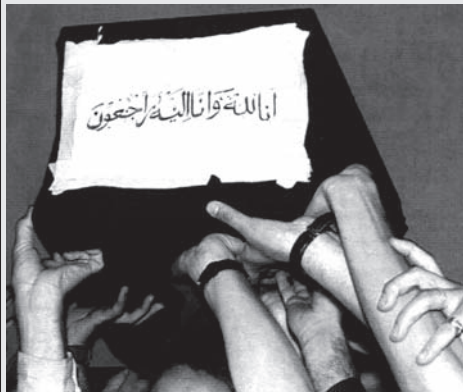 انا لله وَانا اليْه رَاجعُونَ